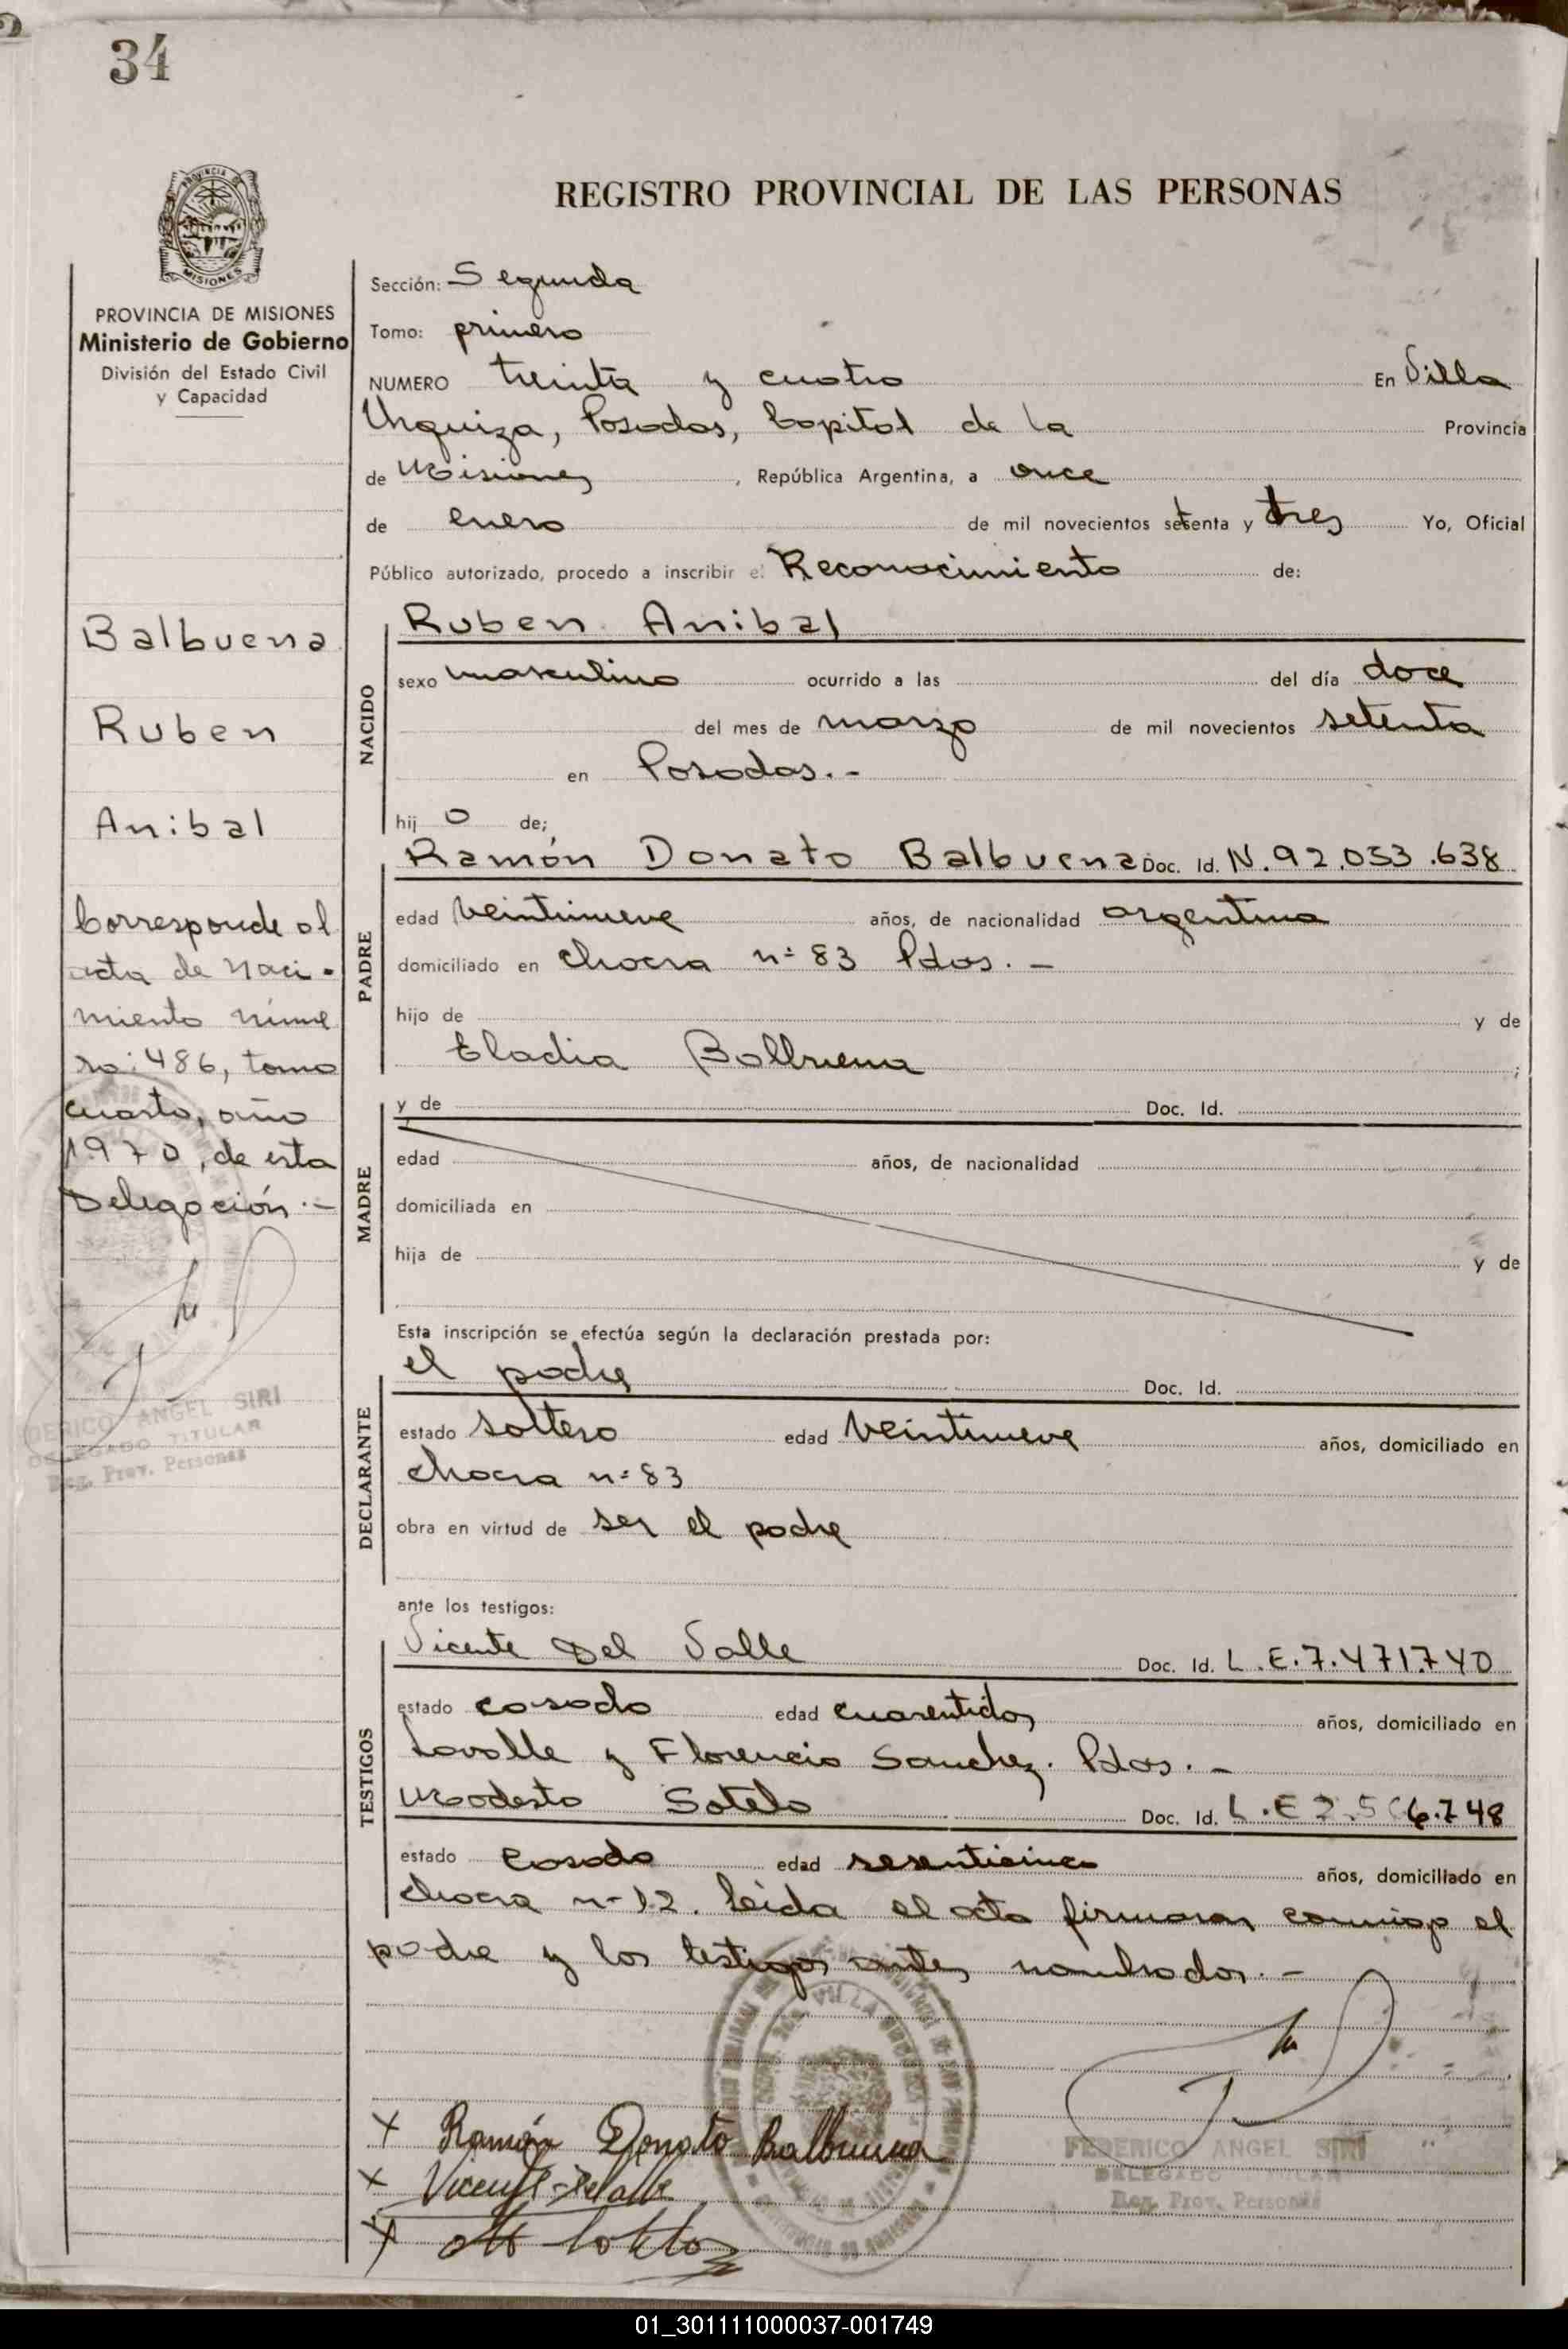 34
PROVINCIA DE
MISIONES
REGISTRO PROVINCIAL DE LAS PERSONAS
PROVINCIA DE MISIONES
Ministerio de Gobierno
División del Estado Civil
y Capacidad
Balbuena
Ruben
Anibal
Corresponde al
acta de Naci-
miento núme
ro: 486, tomo
cuarto, año
1970, de esta
Delegación.-
ANGEL SIRI
DELEGADO TITULAR
Reg. Prov. Personas
Sección: Segunda
Tomo: primero
NUMERO treinta y cuatro En Villa
Urquiza, Posadas, Capital de la Provincia
de Misiones, República Argentina, a once
de enero de mil novecientos setenta y tres Yo, Oficial
Público autorizado, procedo a inscribir el Reconocimiento de:
NACIDO
Ruben Anibal
sexo masculino ocurrido a las del día doce
del mes de marzo de mil novecientos setenta
en Posadas.-
hij o de;
PADRE
Ramón Donato Balbuena Doc. Id. N.92.053.638
edad veintinueve años, de nacionalidad argentina
domiciliado en chacra n=83 Pdas.-
hijo de y de
Eladia Balbuena;
MADRE
y de Doc. Id.
edad años, de nacionalidad
domiciliada en
hija de y de
Esta inscripción se efectúa según la declaración prestada por:
DECLARANTE
el padre Doc. Id.
estado soltero edad veintinueve años, domiciliado en
chacra n=83
obra en virtud de ser el padre
ante los testigos:
TESTIGOS
Vicente Del Valle Doc. Id. L.E.7.471.740
estado casado edad cuarentidos años, domiciliado en
Lavalle y Florencio Sanchez. Pdas.-
Modesto Sotelo Doc. Id. L.E
estado casado edad sesenticinco años, domiciliado en
chacra n-12. Leida el acta firmaron conmigo el
padre y los testigos antes nombrados.-
VILLA
x Ramón Donato Balbuena
x Vicente Del Valle
x
FEDERICO ANGEL SIRI
DELEGADO TITULAR
Reg. Prov. Personas
01_301111000037-001749